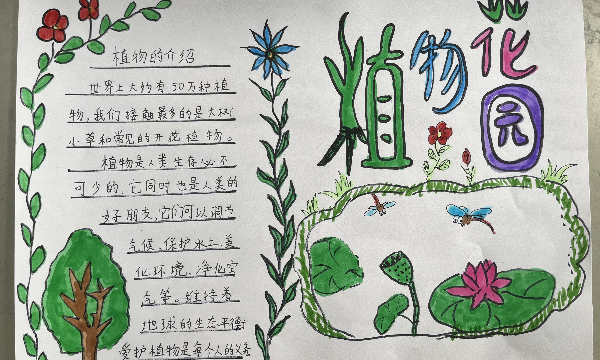 植物花园
植物的介绍
世界上大约有50万种植
物,我们接触最多的是大树
小草和常见的开花植物。
植物是人类生存必不
可少的,它同时也是人类的
好朋友,它们可以调节
气候、保护水土、美
化环境、净化空
气等。维持着
地球的生态平衡
爱护植物是每个人的义务